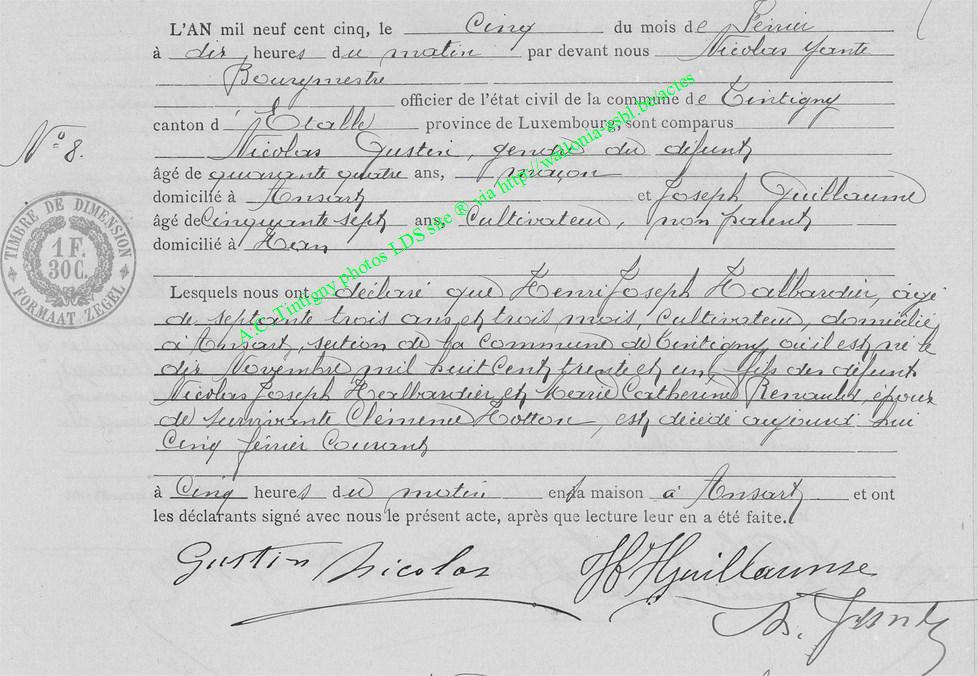 L'AN mil neuf cent cinq, le Cinq du mois de Février
à dix heures du matin par devant nous Nicolas
Bourgmestre
officier de l'état civil de la commune de Tintigny
canton d'Etalle province de Luxembourg, sont comparus
N° 8.
Nicolas Gustin, gendre du défunt
âgé de quarante quatre ans, maçon
domicilié à Ansart et Joseph Guillaume
âgé de Cinquante sept ans, Cultivateur, non parent
domicilié à Han
TIMBRE DE DIMENSION
1 F.
30 C.
FORMAAT ZEGEL
Lesquels nous ont déclaré que Henri Joseph Halbardier, âgé
de septante trois ans et trois mois, Cultivateur, domicilié
à Ansart, section de la Commune de Tintigny où il est né le
dix Novembre mil huit Cent trente et un, fils des défunts
Nicolas Joseph Halbardier et Marie Catherine Renauld, époux
de survivante Clémence Hotton, est décédé aujourd'hui
Cinq février Courant
à Cinq heures du matin en sa maison à Ansart et ont
les déclarants signé avec nous le présent acte, après que lecture leur en a été faite.
Gustin Nicolas
Guillaume
A.C. Tintigny photos LDS site ® via http://wallonia-asbl.be/actes